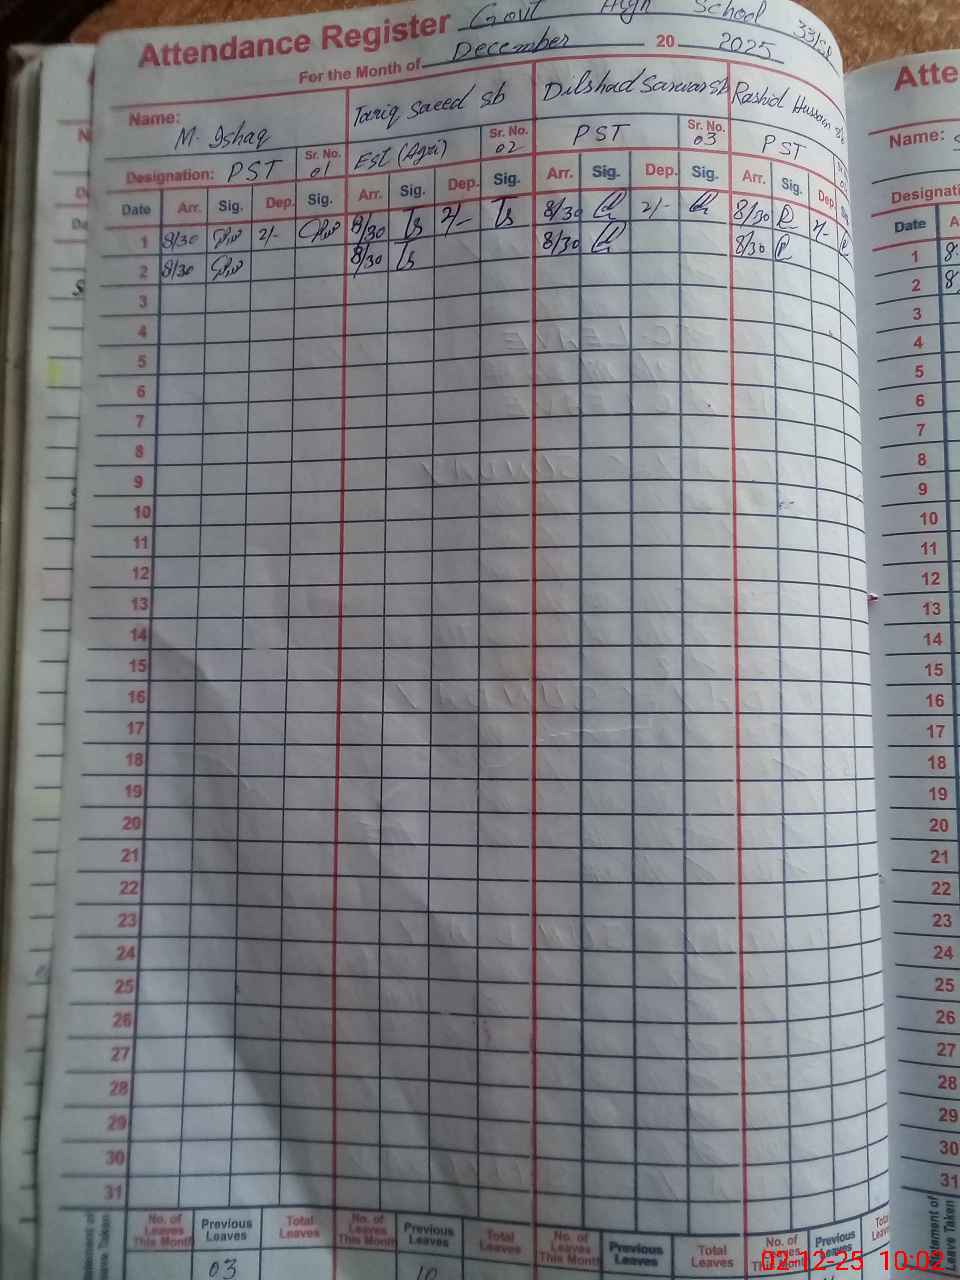 Attendance Register Govt High School 33/SP
For the Month of December 20 2025
Name: M. Ishaq Tariq Saeed Sb Dilshad Sarwar Sb Rashid Hussain Sb
Designation: PST Sr. No. 01 Est (Agri) Sr. No. 02 PST Sr. No. 03 PST
Date Arr. Sig. Dep. Sig. Arr. Sig. Dep. Sig. Arr. Sig. Dep. Sig. Arr. Sig. Dep. Sig.
1 8/30 2/- 8/30 Ts 2/- Ts 8/30 2/- 8/30 2/-
2 8/30 8/30 Ts 8/30 8/30
3
4
5
6
7
8
9
10
11
12
13
14
15
16
17
18
19
20
21
22
23
24
25
26
27
28
29
30
31
No. of Leaves This Month Previous Leaves Total Leaves No. of Leaves This Month Previous Leaves Total Leaves No. of Leaves This Month Previous Leaves Total Leaves No. of Leaves This Month Previous Leaves Total Leaves
03 10
Atte
Name:
Designati
Date A
1 8
2 8
3
4
5
6
7
8
9
10
11
12
13
14
15
16
17
18
19
20
21
22
23
24
25
26
27
28
29
30
31
02-12-25 10:02